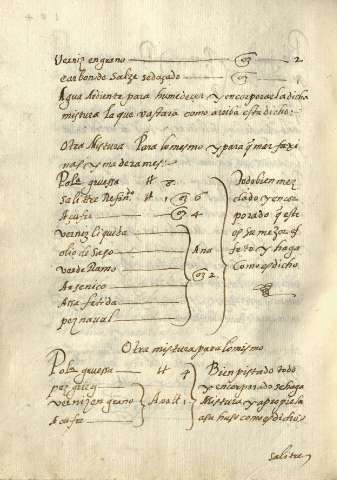 Verniz en grano — oz — 2
carbon de Salze sedaçado — oz — 1
Agua Ardiente para humedecer y encorporar la dicha
mistura la que vastara como arriba esta dicho:
Otra Mistura Para lo mismo y para q̃mar faxi
nas y maderames:
Polᵃ gruessa — ℔ 3.
Salitre Refinᵒ — ℔ 1 oz 6
Açufre — oz 4
verniz liquida
olio de Sapo
verde Ramo
Arsenico
Assa fetida
pez naual
Ana
oz 2.
Todo bien mez
clado y encor
porado q̃ este
en su mezor ef
feto y haga
Como es dicho
Otra mistura para lo mismo
Polᵃ gruessa — ℔ 4
pez greeg
verniz en grano
Açufre
Ana ℔ 1
Bien pistado todo
y encorporado se haga
Mistura y apropiese
a su huso como es dicho
salitre